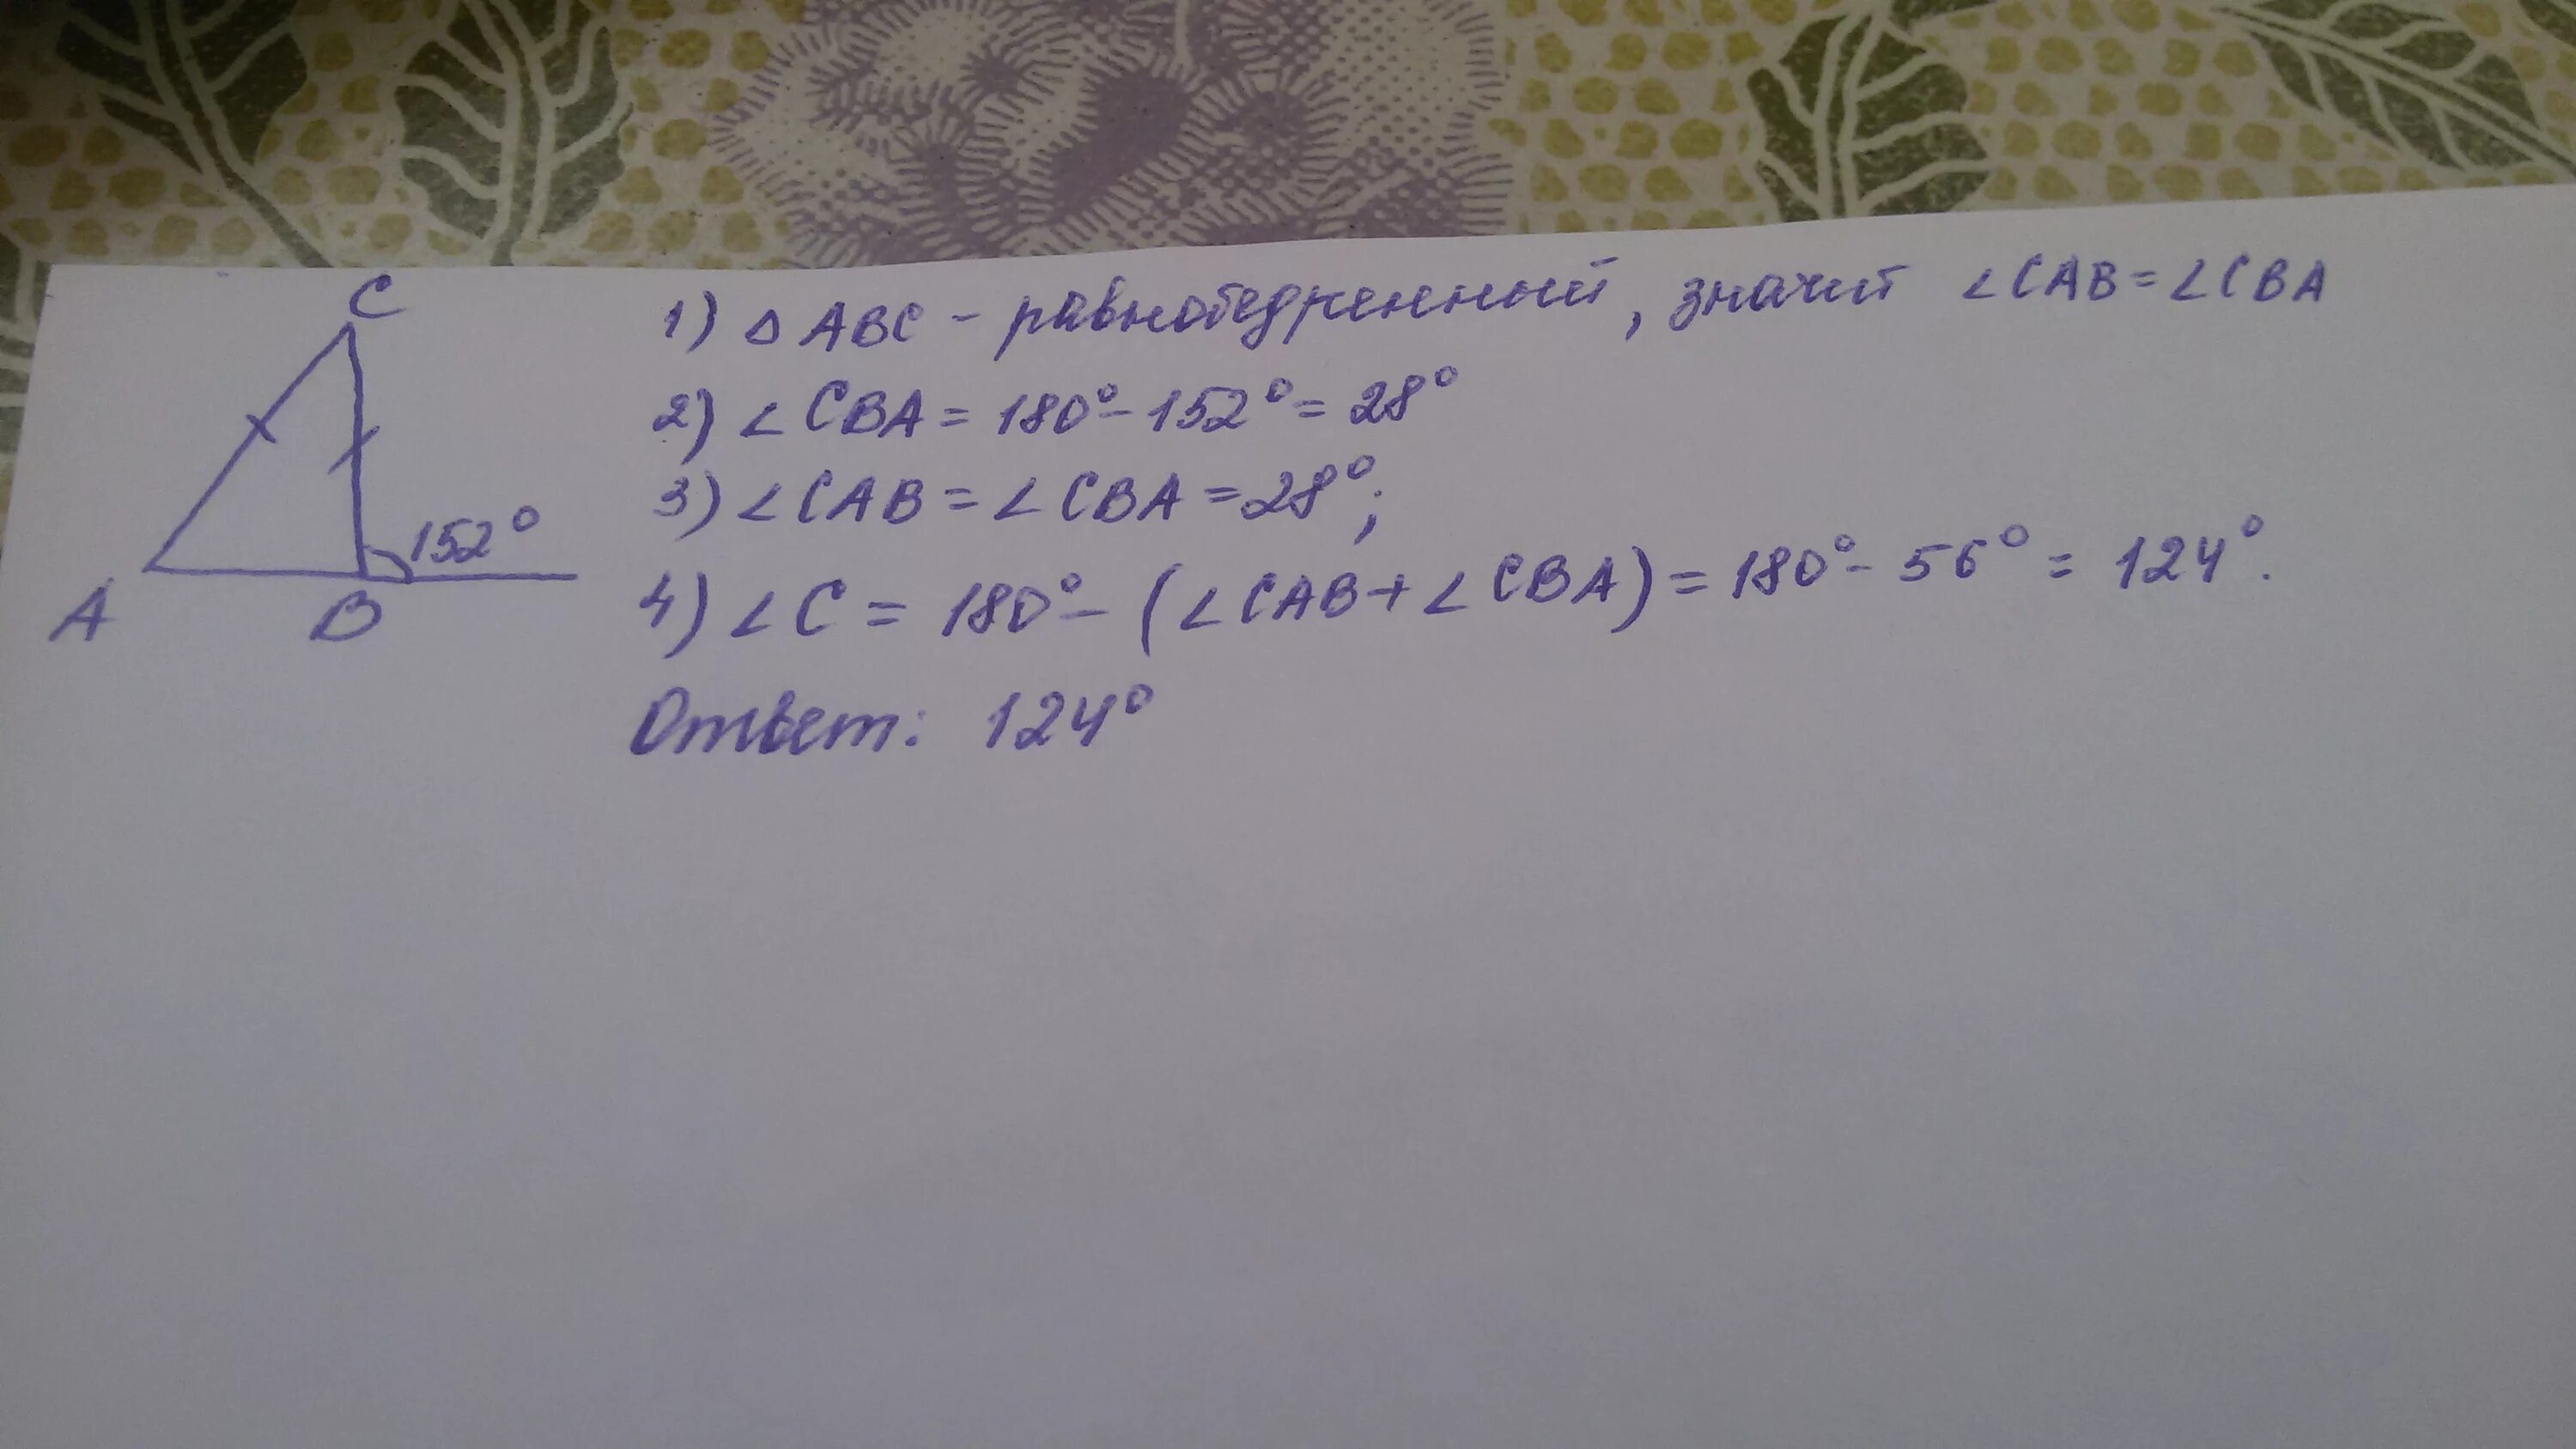 C
A
B
152°
1) △ ABC - равнобедренный, значит ∠CAB = ∠CBA
2) ∠CBA = 180° - 152° = 28°
3) ∠CAB = ∠CBA = 28°;
4) ∠C = 180° - (∠CAB + ∠CBA) = 180° - 56° = 124°.
Ответ: 124°